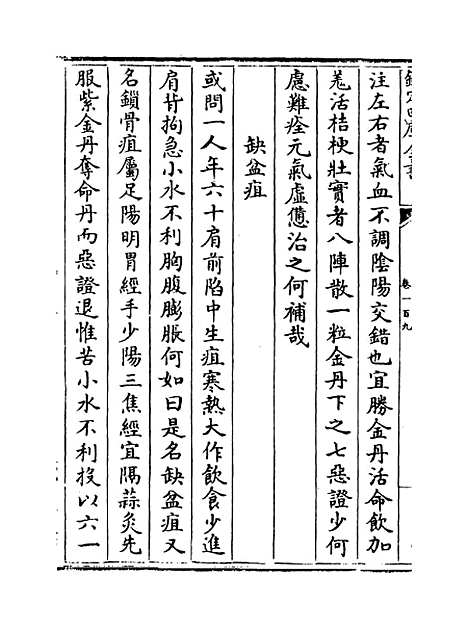 欽定四庫全書
卷一百九
注左右者氣血不調陰陽交錯也宜勝金丹活命飲加
羗活桔梗壯實者八陣散一粒金丹下之七惡證少何
慮難痊元氣虛憊治之何補哉
缺盆疽
或問一人年六十肩前陷中生疽寒熱大作飲食少進
肩背拘急小水不利胸腹膨脹何如曰是名缺盆疽又
名鎖骨疽屬足陽明胃經手少陽三焦經宜隔蒜灸先
服紫金丹奪命丹而惡證退惟苦小水不利投以六一